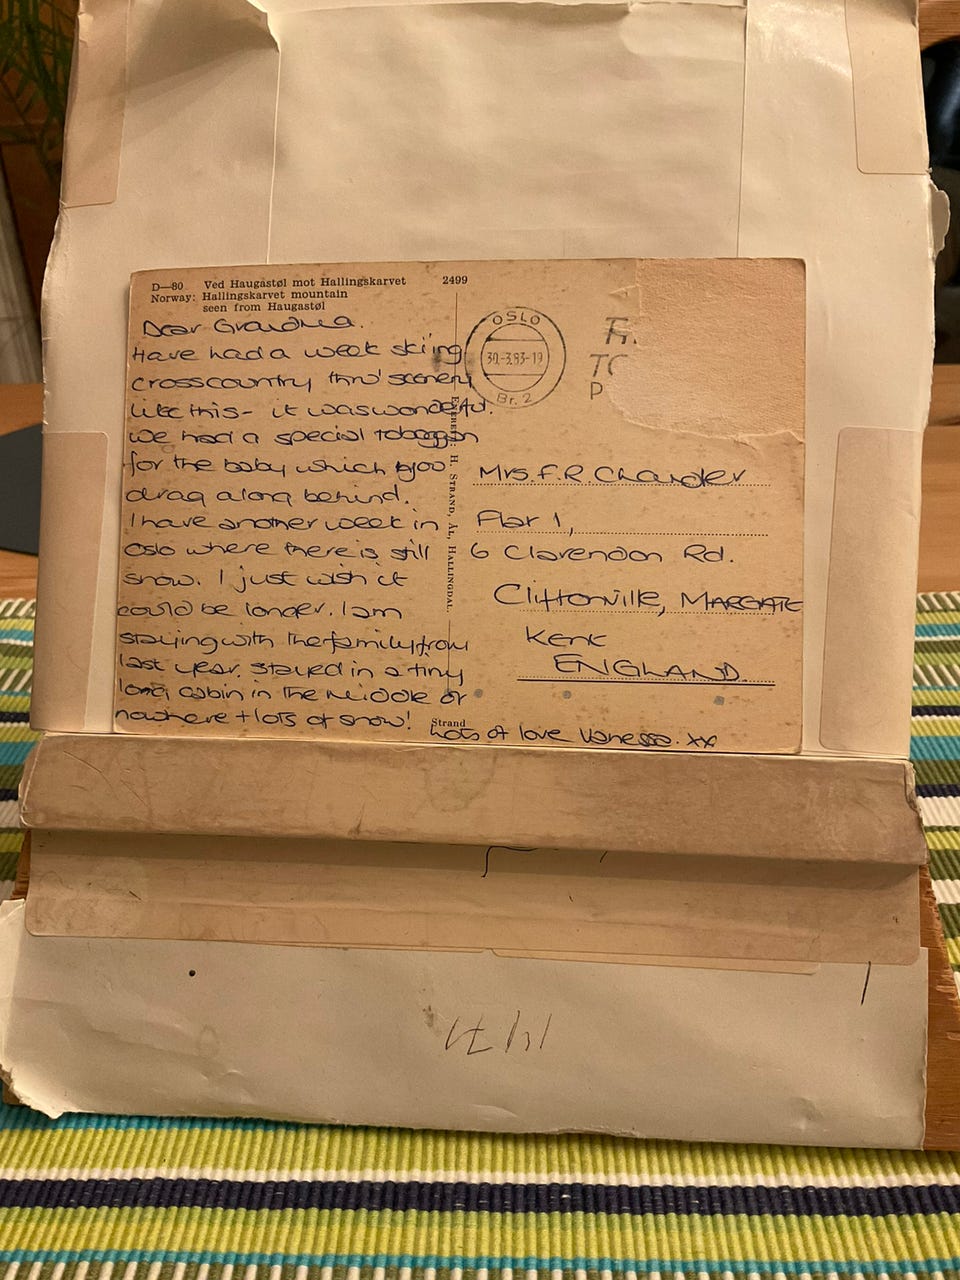 D—80 Ved Haugastøl mot Hallingskarvet 2499
Norway: Hallingskarvet mountain
seen from Haugastøl
Dear Grandma.
Have had a week skiing
crosscountry thro' scenery
like this - it was wonderful.
we had a special toboggan
for the baby which you
drag along behind.
I have another week in
Oslo where there is still
snow. I just wish it
could be longer. I am
staying with the family from
last year. stayed in a tiny
long cabin in the middle of
nowhere + lots of snow!
Lots of love Vanessa. xx
Eneret: H. Strand, Ål, Hallingdal.
Strand
OSLO
30.-3.83-19
Br. 2
TO
P
Mrs. F. R. Chandler
Flat 1,
6 Clarendon Rd.
Cliftonville, MARGATE
Kent
ENGLAND.